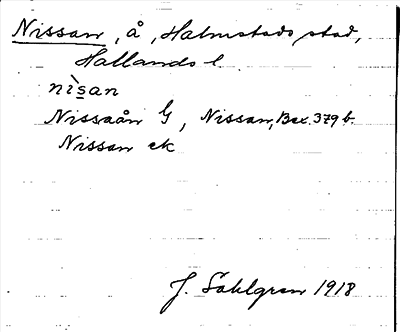 Nissan, å, Halmstads stad,
Hallands l.
nìsan
Nissaån G, Nissan, Bex. 379 b.
Nissan ek
J. Sahlgren 1918